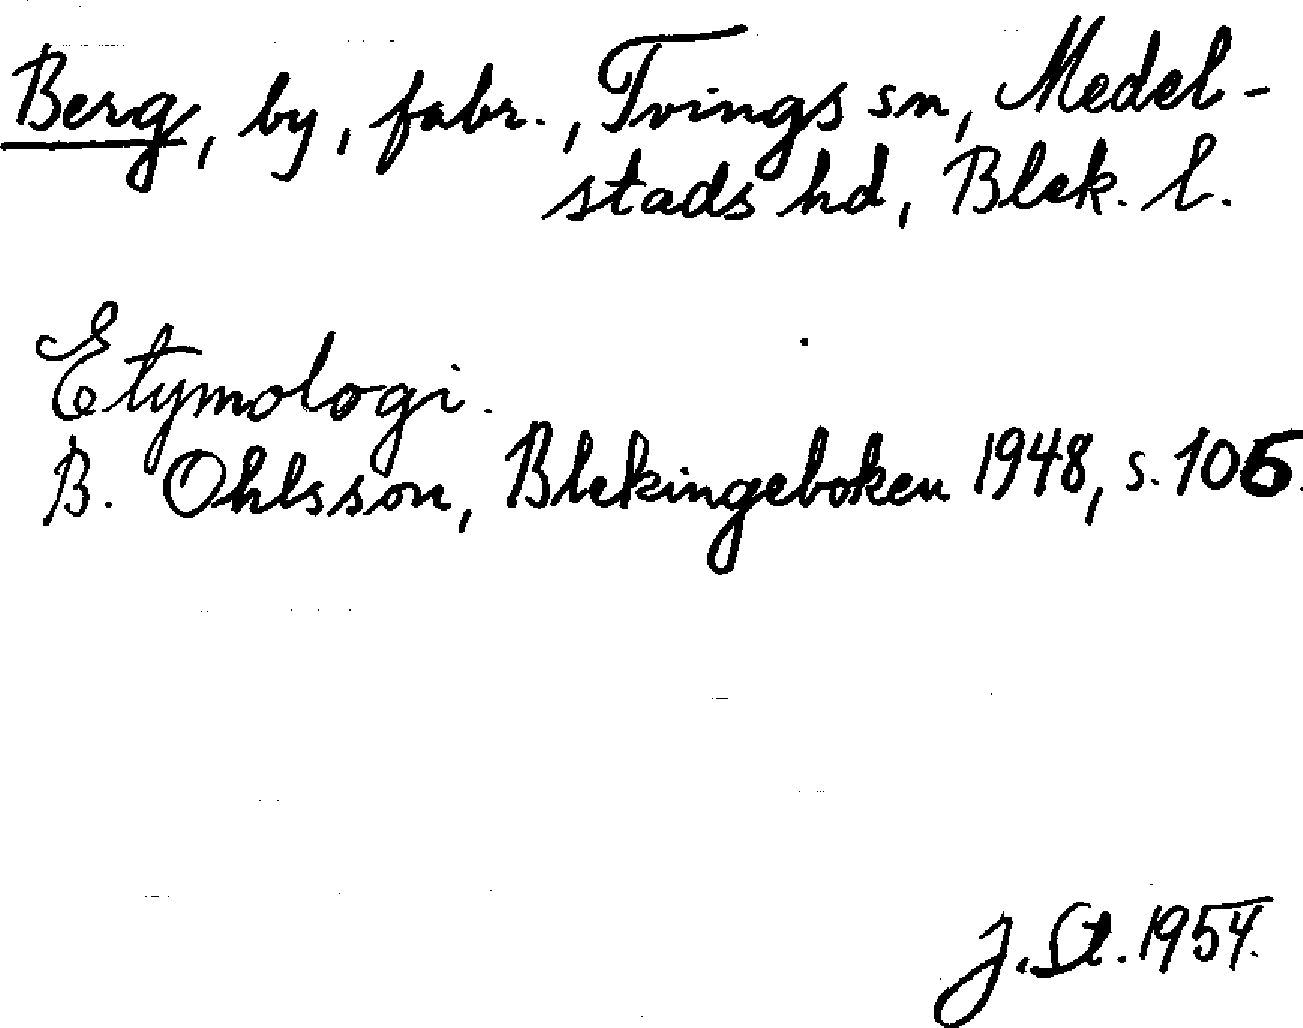 Berg, by, fabr., Tvings sn, Medel-
stads hd, Blek. l.
Etymologi.
B. Ohlsson, Blekingeboken 1948, s. 105.
J. St. 1954.